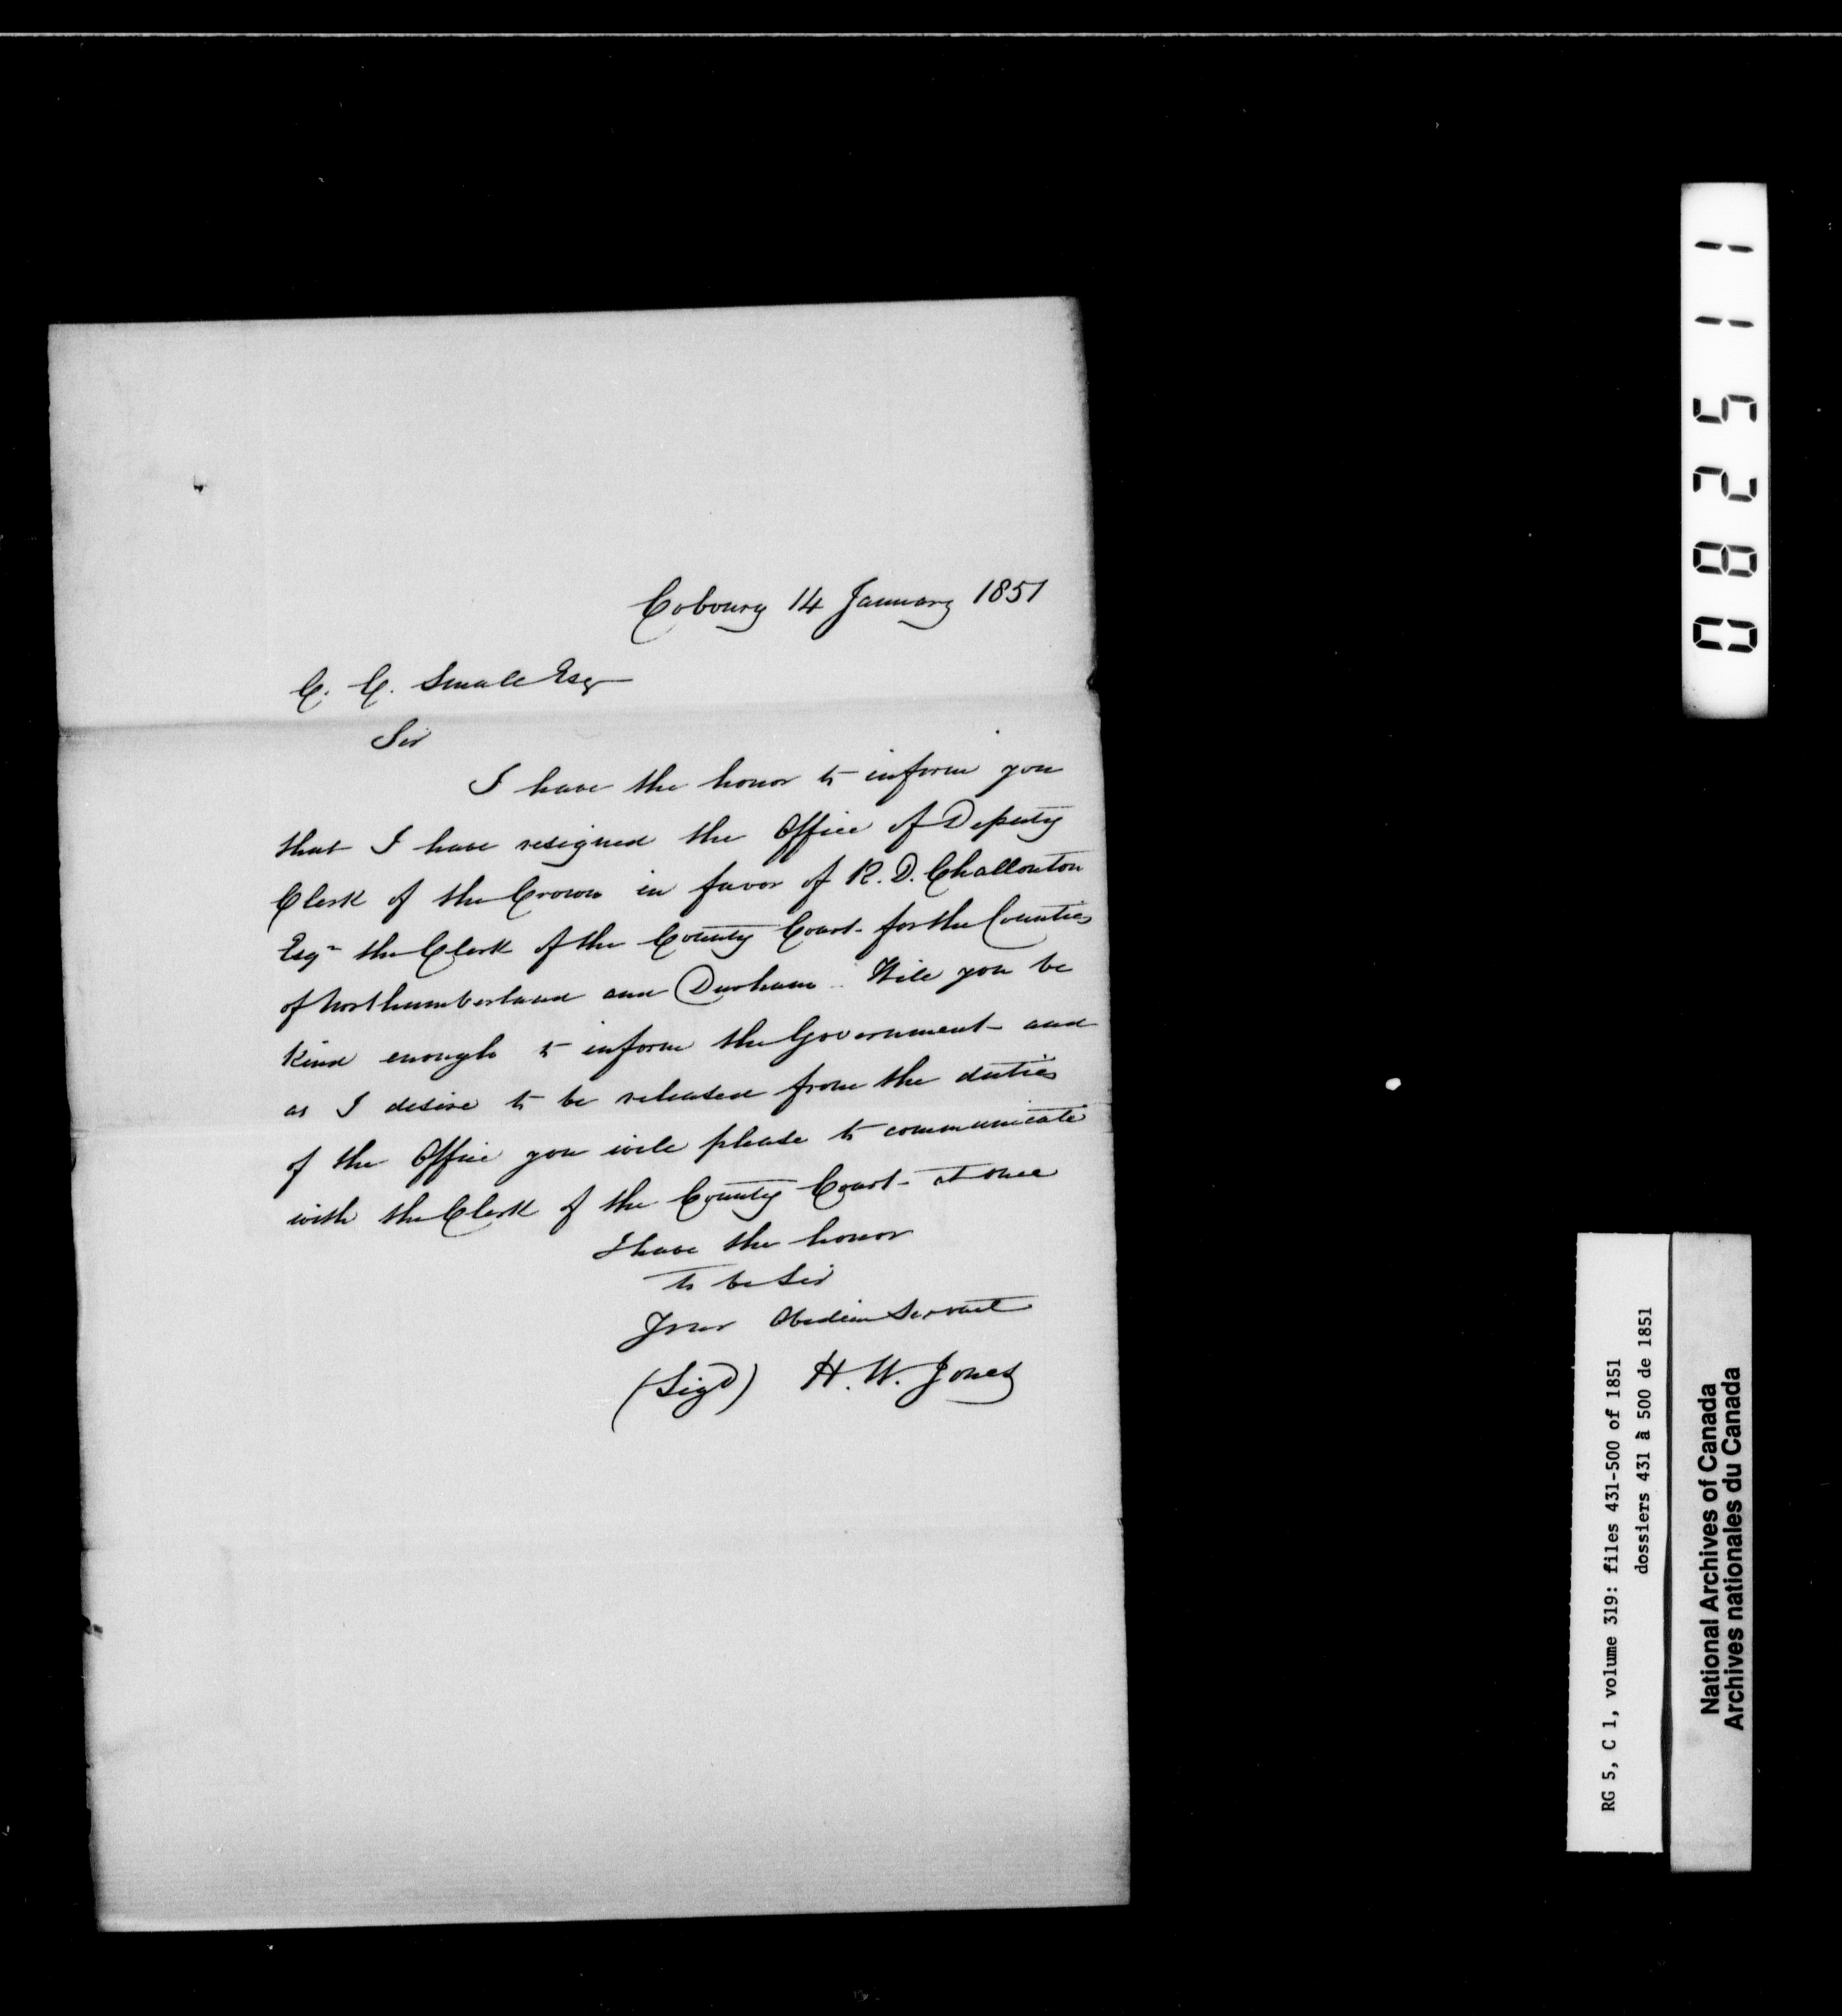 Cobourg 14 January 1851
C. C. Small Esq
Sir
I have the honor to inform you
that I have resigned the Office of Deputy
Clerk of the Crown in favor of R. D. Chatterton
Esqr the Clerk of the County Court for the Counties
of Northumberland and Durham. Will you be
kind enough to inform the Government and
as I desire to be released from the duties
of the Office you will please to communicate
with the Clerk of the County Court at once
I have the honor
to be Sir
Your Obedient Servant
(Sigd) H. W. Jones
082511
RG 5, C 1, volume 319: files 431-500 of 1851
dossiers 431 à 500 de 1851
National Archives of Canada
Archives nationales du Canada